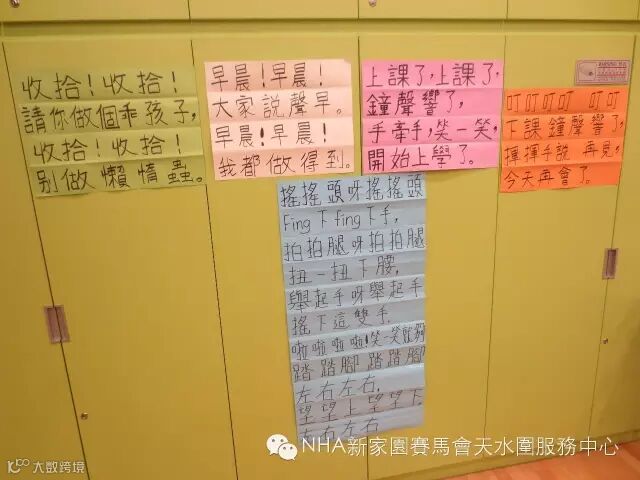 收拾！收拾！
請你做個乖孩子，
收拾！收拾！
别做懶惰蟲。
早晨！早晨！
大家說聲早。
早晨！早晨！
我都做得到。
上課了，上課了，
鐘聲響了，
手牽手，笑一笑，
開始上學了。
叮叮叮叮 叮叮
下課鐘聲響了，
揮揮手說 再見，
今天再會了。
搖搖頭呀搖搖頭
Fing下fing下手，
拍拍腿呀拍拍腿
扭一扭下腰，
舉起手呀舉起手
搖下這雙手，
啦啦啦啦！笑一笑就夠
踏踏腳 踏踏腳
左右左右，
望望上望望下
左右左右
NHA新家園賽馬會天水圍服務中心
大數跨境